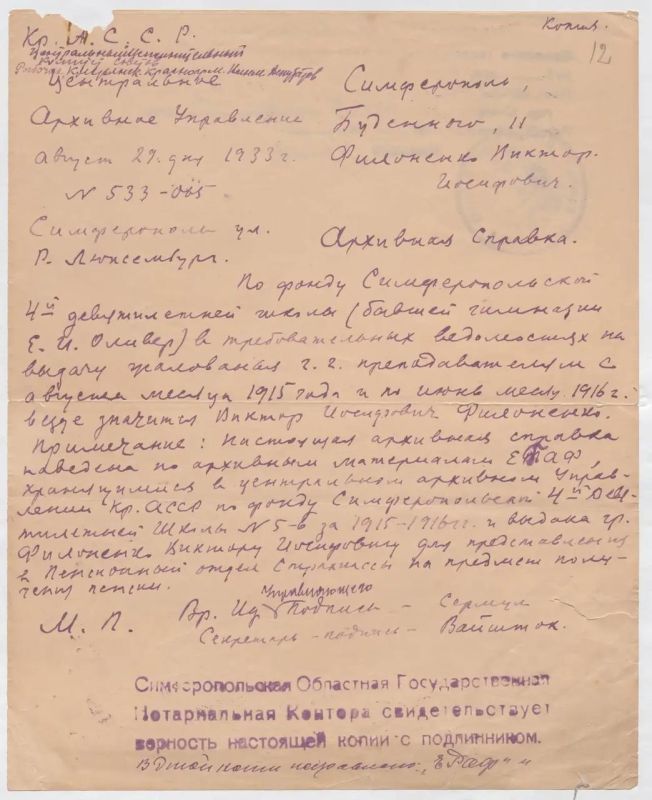 Копия.
12
Кр. А. С. С. Р.
Центральный Исполнительный
Комитет Советов
Рабочих, Крестьянск. Красноарм. Депутатов
Центральное
Архивное Управление
Август 29. дня 1933 г.
N 533-065
Симферополь ул.
Р. Люксембург.
Симферополь,
Буденного, 11
Филоненко Виктор.
Иосифович.
Архивная Справка.
По фонду Симферопольской
4й девятилетней школы (бывшей гимназии
Е. И. Оливер) в требовательных ведомостях на
выдачу жалования г.г. преподавателям с
августа месяца 1915 года и по июнь месяц 1916 г.
везде значится Виктор Иосифович Филоненко.
Примечание: Настоящая архивная справка
наведена по архивным материалам ЕГАФ,
хранящимися в центральном архивном Управ-
лении Кр. АССР по фонду Симферопольской 4й Девя-
тилетней Школы N 5-в за 1915-1916 гг. и выдана гр.
Филоненко Виктору Иосифовичу для представления
в Пенсионный отдел Страхкассы на предмет полу-
чения пенсии.
Управляющего
М. П. Вр. Ид Подпись -
Секретарь - подпись - Вайшток.
Симферопольская Областная Государственная
Нотариальная Контора свидетельствует
верность настоящей копии с подлинником.
В этой копии исправлено: "ЕГАФ" и